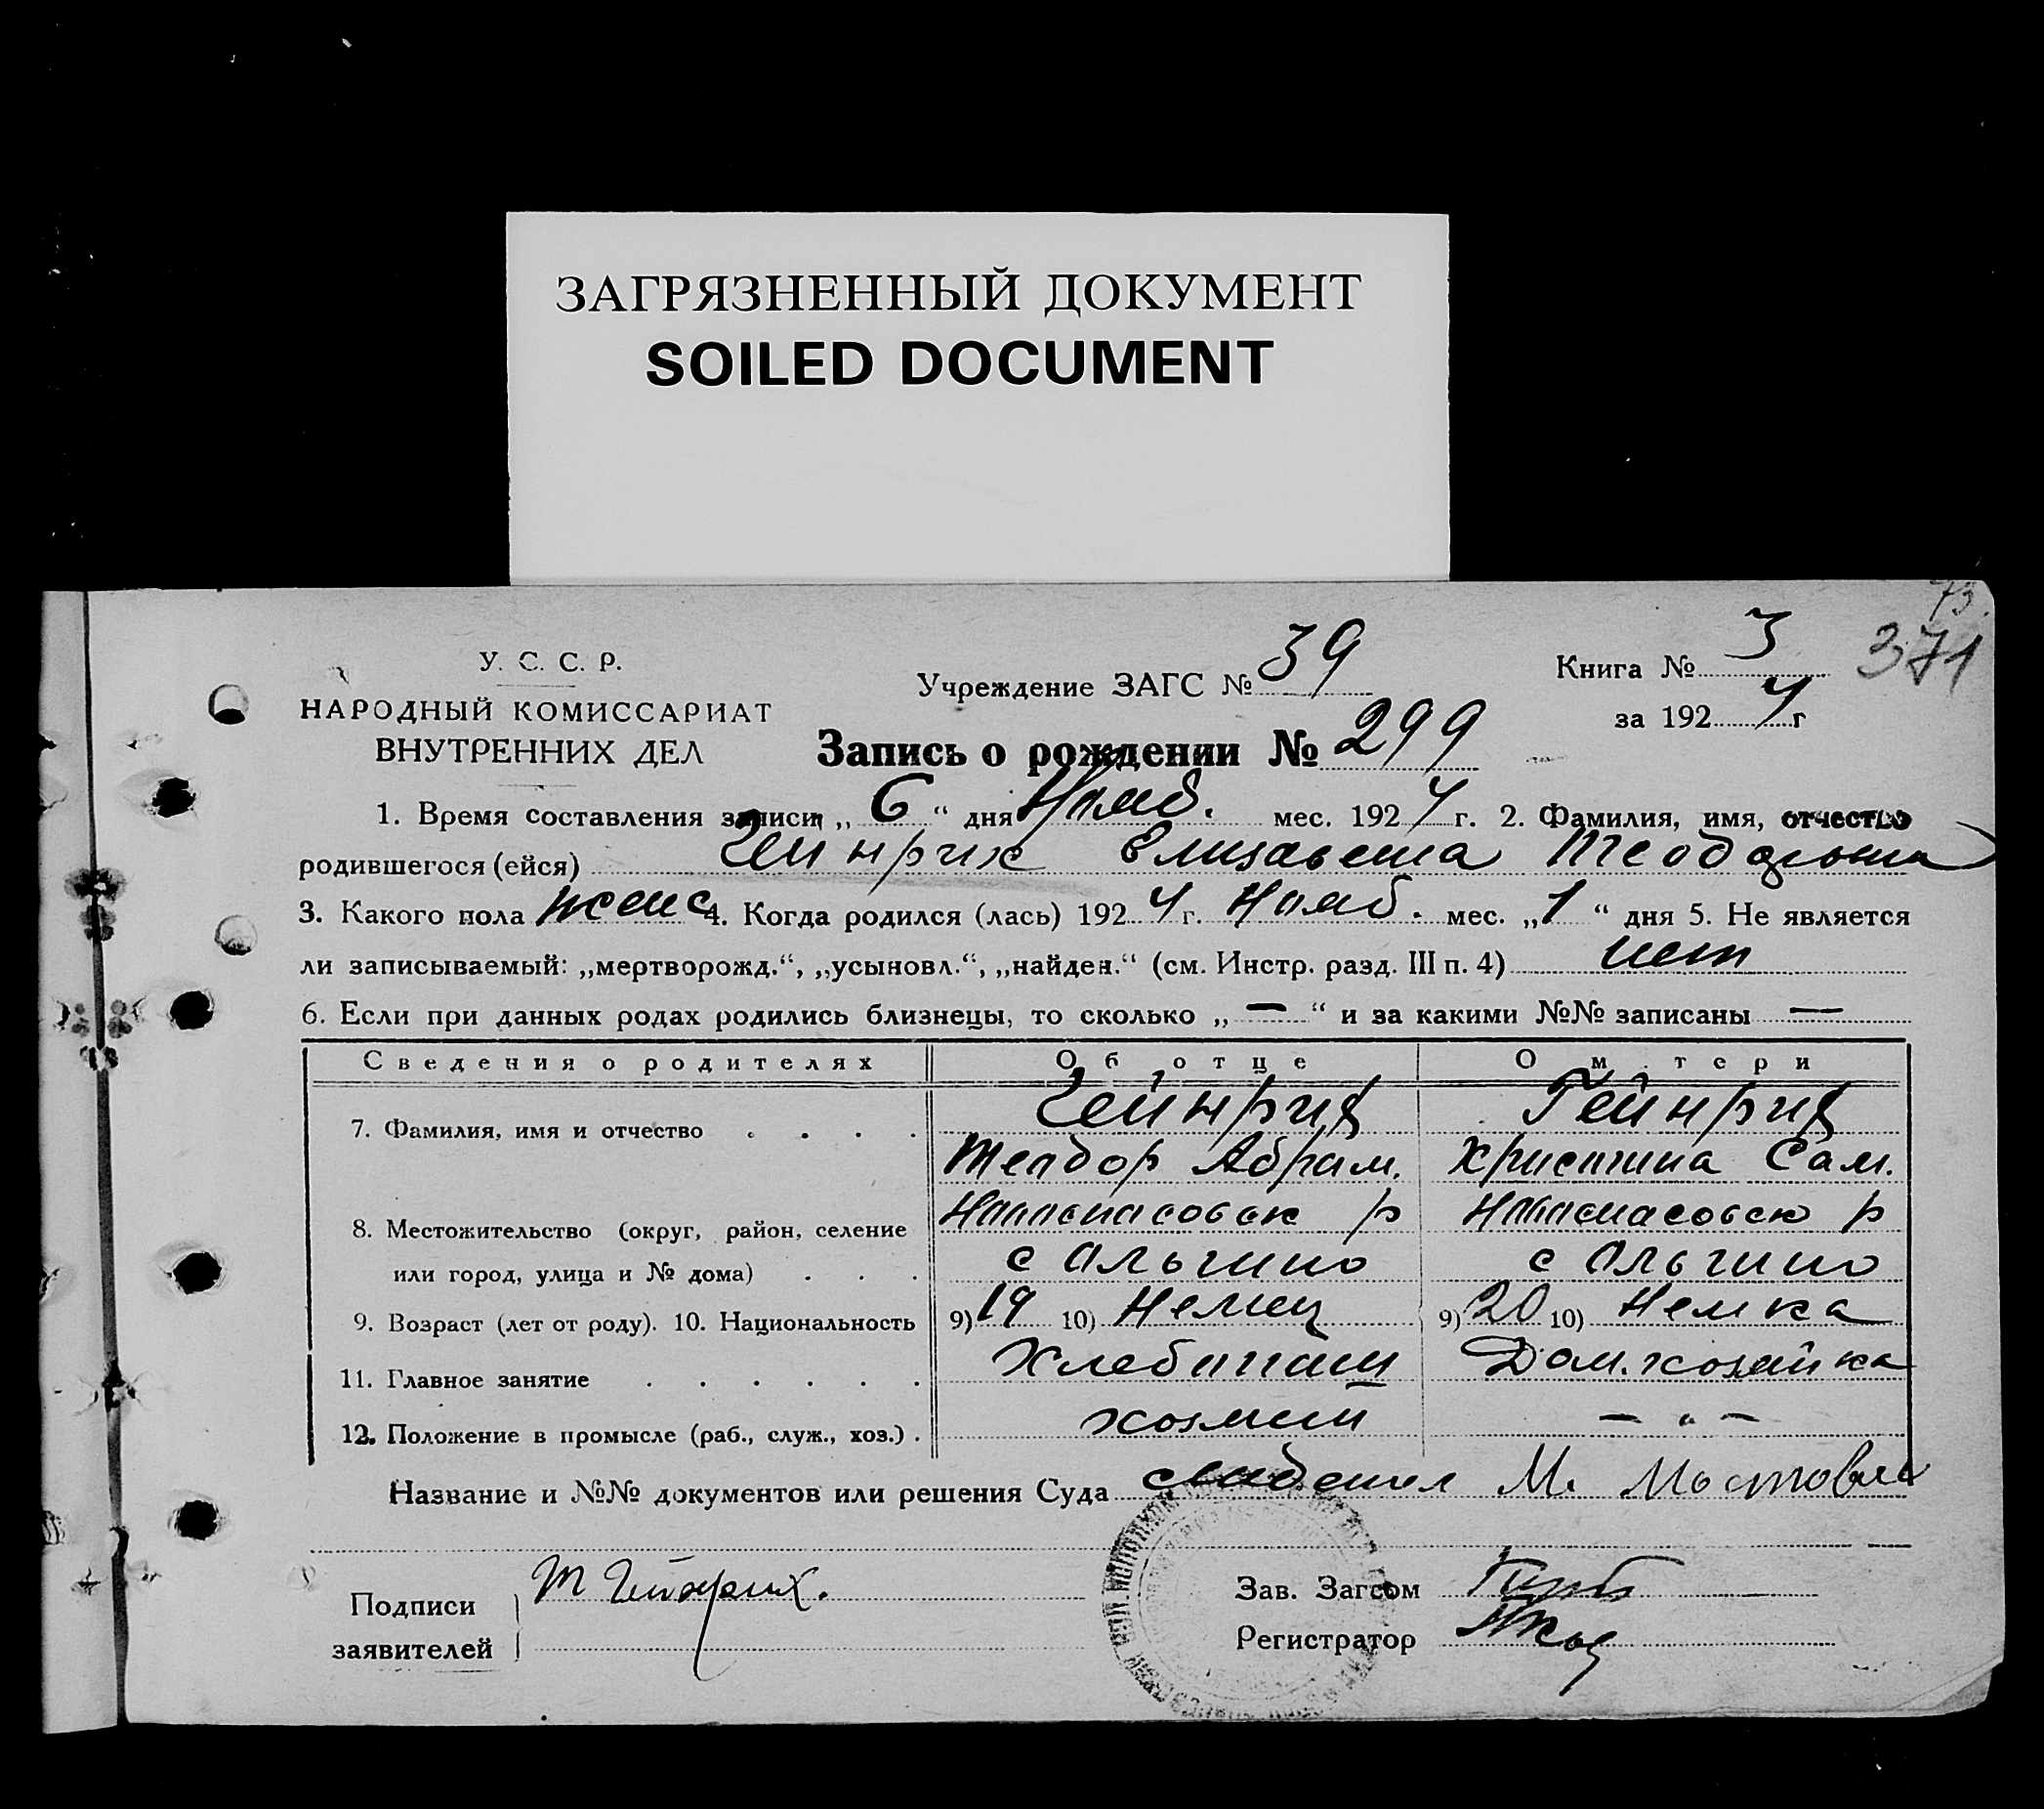 ЗАГРЯЗНЕННЫЙ ДОКУМЕНТ
SOILED DOCUMENT
73.
371
У. С. С. Р.
НАРОДНЫЙ КОМИССАРИАТ
ВНУТРЕННИХ ДЕЛ
Учреждение ЗАГС № 39
Книга № 3
за 1924 г
Запись о рождении № 299
1. Время составления записи „ 6 “ дня Нояб. мес. 1924 г. 2. Фамилия, имя, отчество
родившегося (ейся) Гейнрих Елизавета
3. Какого пола женс 4. Когда родился (лась) 1924 г. Нояб. мес. „1 “ дня 5. Не является
ли записываемый: „мертворожд.“, „усыновл.“, „найден.“ (см. Инстр. разд. III п. 4) нет
6. Если при данных родах родились близнецы, то сколько „ — “ и за какими №№ записаны —
Сведения о родителях Об отце О м тери
7. Фамилия, имя и отчество . . . . Гейнрих Гейнрих
Теодор Абрам. Христина Сам.
8. Местожительство (округ, район, селение р р
или город, улица и № дома) . . . с Ольгино с Ольгино
9. Возраст (лет от роду). 10. Национальность 9) 19 10) Немец 9) 20 10) Немка
11. Главное занятие . . . . . . Хлебопаш Дом.хозяйка
12. Положение в промысле (раб., служ., хоз.) . хозяин — „ —
Название и №№ документов или решения Суда М.
Подписи
заявителей
Т Гейнрих.
Зав. Загсом
Регистратор